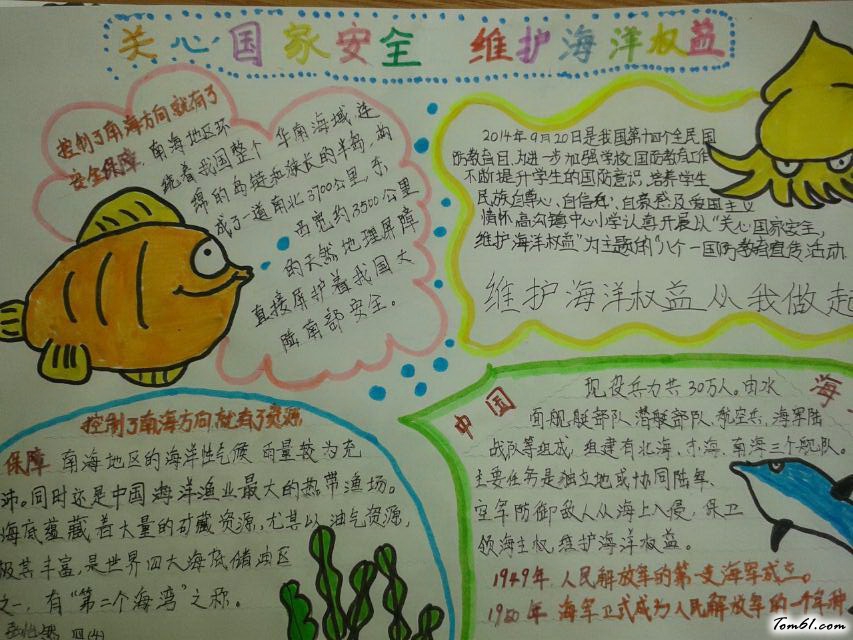 关心国家安全 维护海洋权益
控制了南海方向就有了
安全保障。南海地区环
绕着我国整个华南海域,连
绵的岛链和狭长的半岛,构
成了一道南北3700公里,东
西宽约3500公里
的天然地理屏障
直接屏护着我国大
陆南部安全。
2014年9月20日是我国第十四个全民国
防教育日,为进一步加强学校国防教育工作
不断提升学生的国防意识,培养学生
民族自尊心,自信和,自豪感及爱国主义
情怀,高沟镇中心小学认真开展从“关心国家安全,
维护海洋权益”为主题的“八个一国防教育宣传活动
维护海洋权益从我做起
控制了南海方向,就有了资源
保障 南海地区的海洋性气候 雨量较为充
沛。同时还是中国海洋渔业最大的热带渔场。
海底蕴藏着大量的矿藏资源,尤其以油气资源,
极其丰富,是世界四大海底储油区
之一,有“第二个海湾”之称。
四(4)
中国海
现役兵力共30万人。由水
面舰艇部队 潜艇部队,航空兵,海军陆
战队等组成,组建有北海,东海,南海三个舰队。
主要任务是独立地或协同陆军、
空军防御敌人从海上入侵,保卫
领海主权,维护海洋权益。
1949年,人民解放军的第一支海军成立。
1950年 海军正式成为人民解放军的一个军种
Tom61.com